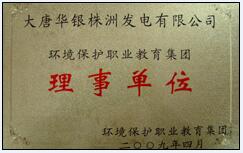 大唐华银株洲发电有限公司
环境保护职业教育集团
理事单位
环境保护职业教育集团
二〇〇九年四月